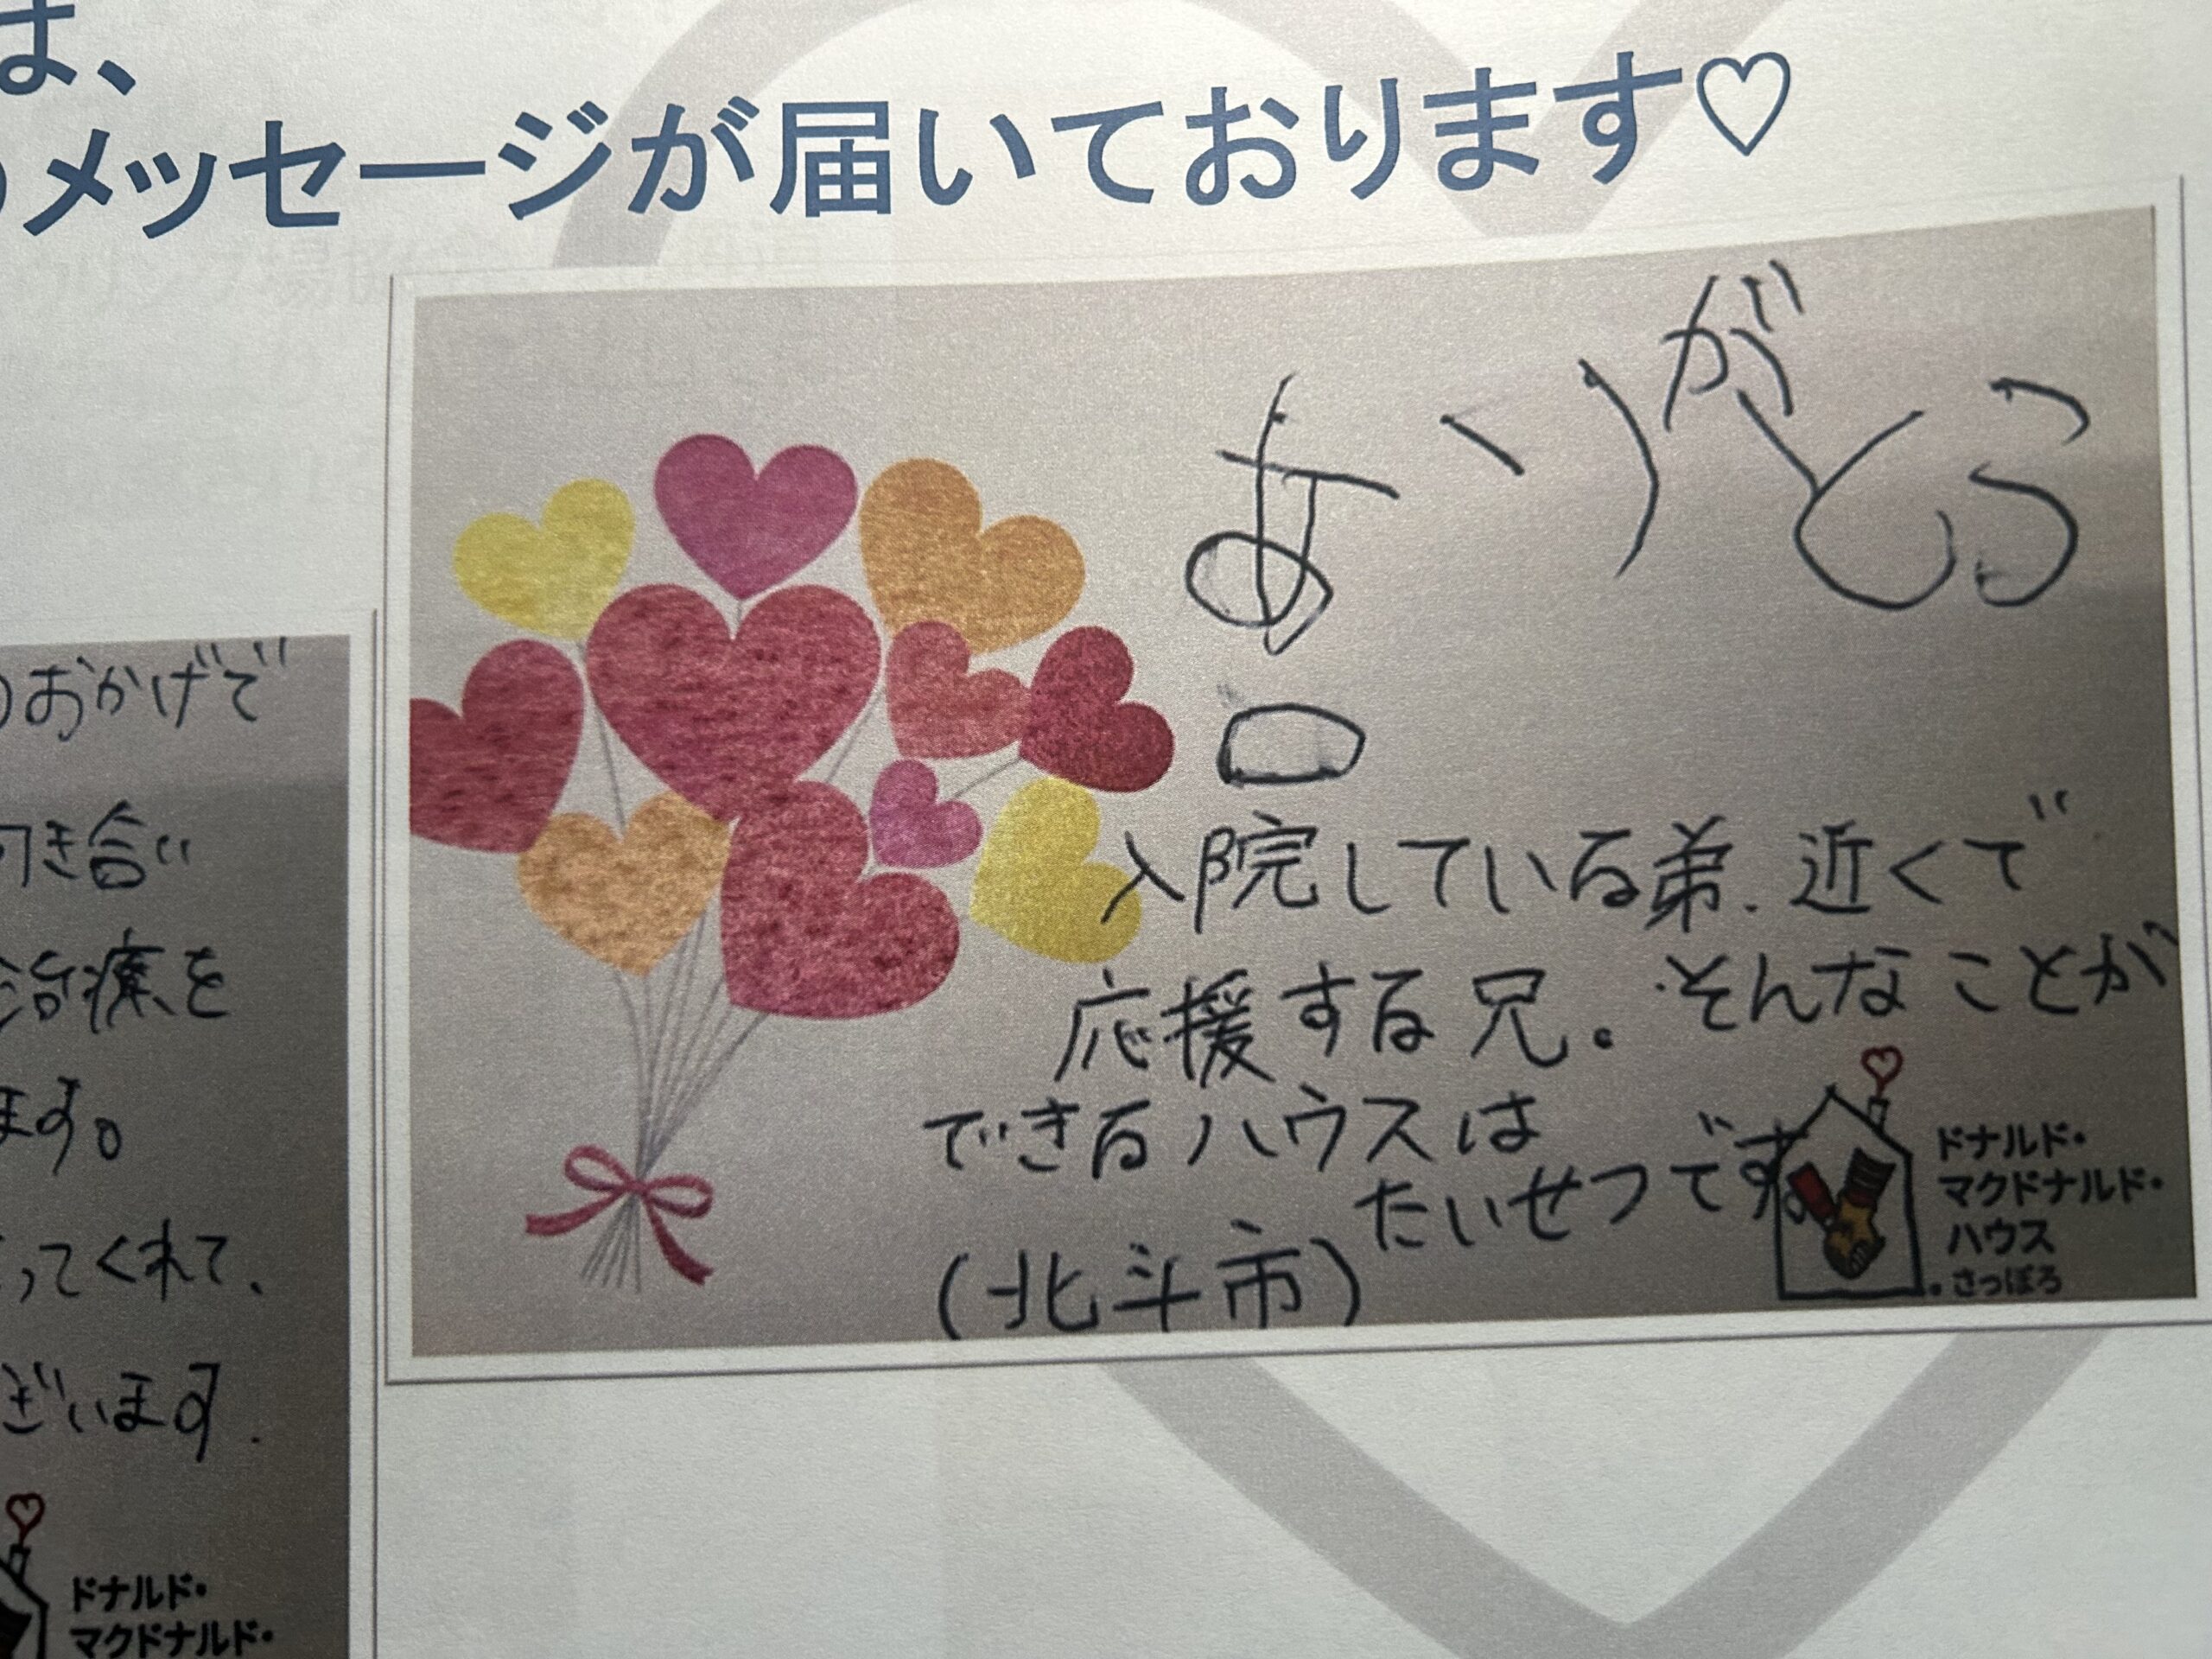 は、
のメッセージが届いております♡
ありがとう
入院している弟.近くで
応援する兄。そんなことが
できるハウスは
たいせつです。
(北斗市)
ドナルド・
マクドナルド・
ハウス
さっぽろ
のおかげで
向き合い
治療を
ます。
ってくれて、
ざいます.
ドナルド・
マクドナルド・